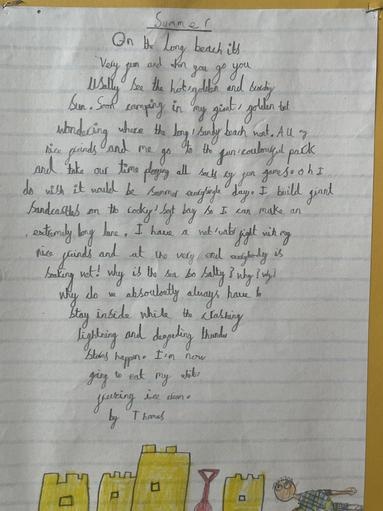 Summer
On the long beach its
Very fun and when you go you
Usally see the hot golden and beachy
Sun. Soon camping in my giant golden tet
wondering where the long sandy beach went. All my
nice friends and me go to the fun coulourful park
and take our time playing all sorts of fun games. oh I
do wish it would be summer every single day. I build giant
Sandcastles on the rocky soft bay so I can make an
extremely long lane. I have a wet water fight with my
nice friends and at the very end everybody is
soaking wet! Why is the sea so salty? Why! Why!
Why do we absoloutly always have to
stay inside while the crashing
lightning and thunder
happen. I'm now
going to eat my white
ice cream.
by Thomas